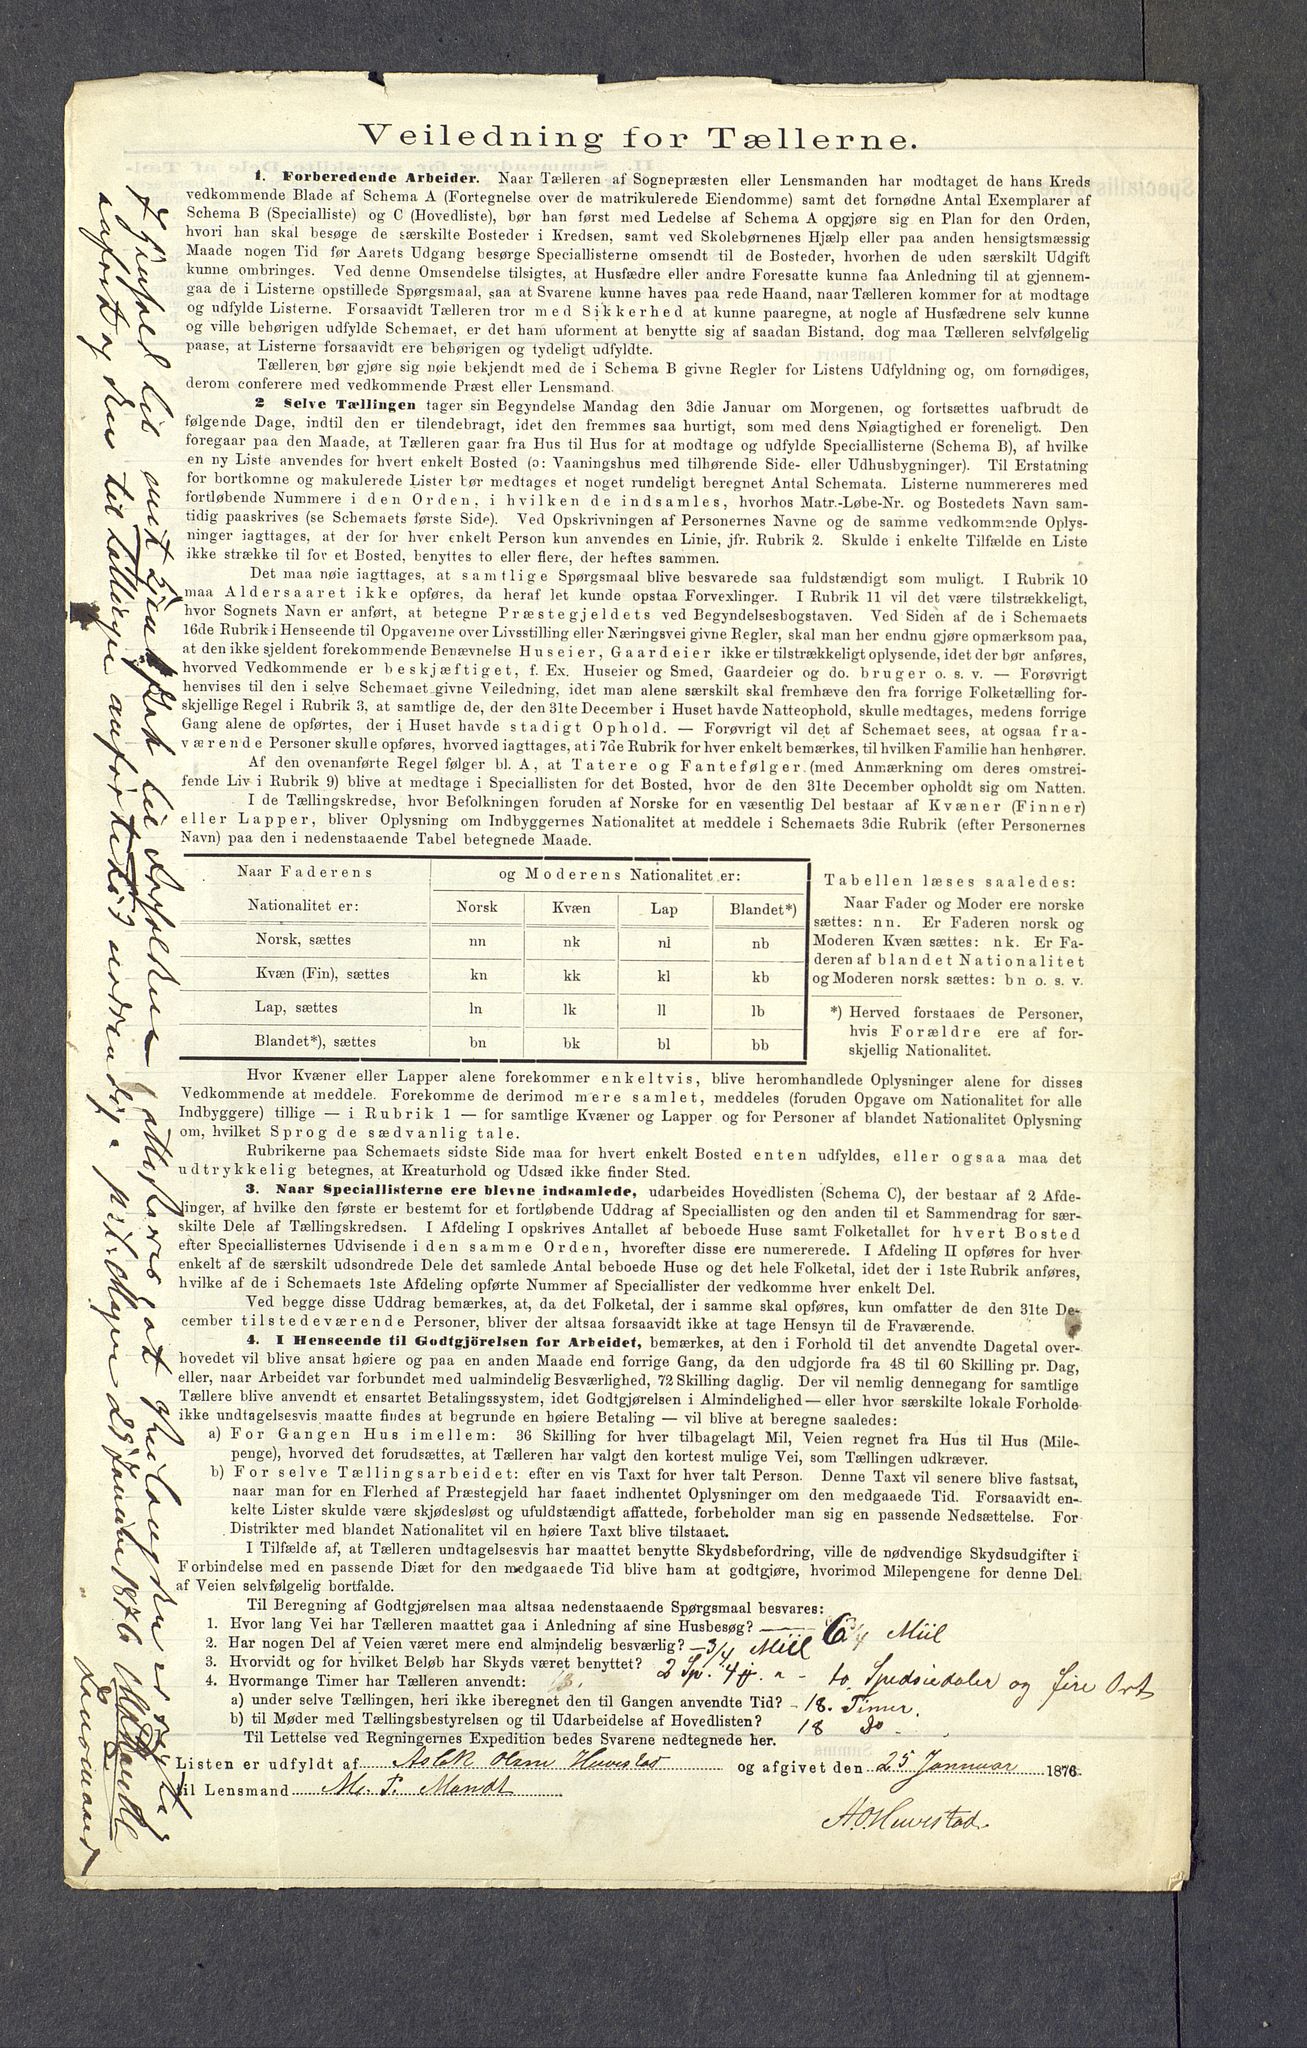 Veiledning for Tællerne.
1. Forberedende Arbeider. Naar Tælleren af Sognepræsten eller Lensmanden har modtaget de hans Kreds
vedkommende Blade af Schema A (Fortegnelse over de matrikulerede Eiendomme) samt det fornødne Antal Exemplarer af
Schema B (Specialliste) og C (Hovedliste), bør han først med Ledelse af Schema A opgjøre sig en Plan for den Orden,
hvori han skal besøge de særskilte Bosteder i Kredsen, samt ved Skolebørnenes Hjælp eller paa anden hensigtsmæssig
Maade nogen Tid før Aarets Udgang besørge Speciallisterne omsendt til de Bosteder, hvorhen de uden særskilt Udgift
kunne ombringes. Ved denne Omsendelse tilsigtes, at Husfædre eller andre Foresatte kunne faa Anledning til at gjennem-
gaa de i Listerne opstillede Spørgsmaal, saa at Svarene kunne haves paa rede Haand, naar Tælleren kommer for at modtage
og udfylde Listerne. Forsaavidt Tælleren tror med Sikkerhed at kunne paaregne, at nogle af Husfædrene selv kunne
og ville behørigen udfylde Schemaet, er det ham uforment at benytte sig af saadan Bistand, dog maa Tælleren selvfølgelig
paase, at Listerne forsaavidt ere behørigen og tydeligt udfyldte.
Tælleren bør gjøre sig nøie bekjendt med de i Schema B givne Regler for Listens Udfyldning og, om fornødiges,
derom conferere med vedkommende Præst eller Lensmand.
2 Selve Tællingen tager sin Begyndelse Mandag den 3die Januar om Morgenen, og fortsættes uafbrudt de
følgende Dage, indtil den er tilendebragt, idet den fremmes saa hurtigt, som med dens Nøiagtighed er foreneligt. Den
foregaar paa den Maade, at Tælleren gaar fra Hus til Hus for at modtage og udfylde Speciallisterne (Schema B), af hvilke
en ny Liste anvendes for hvert enkelt Bosted (ɔ: Vaaningshus med tilhørende Side- eller Udhusbygninger). Til Erstatning
for bortkomne og makulerede Lister bør medtages et noget rundeligt beregnet Antal Schemata. Listerne nummereres med
fortløbende Nummere i den Orden, i hvilken de indsamles, hvorhos Matr.-Løbe-Nr. og Bostedets Navn sam-
tidig paaskrives (se Schemaets første Side). Ved Opskrivningen af Personernes Navne og de samme vedkommende Oplys-
ninger iagttages, at der for hver enkelt Person kun anvendes en Linie, jfr. Rubrik 2. Skulde i enkelte Tilfælde en Liste
ikke strække til for et Bosted, benyttes to eller flere, der heftes sammen.
Det maa nøie iagttages, at samtlige Spørgsmaal blive besvarede saa fuldstændigt som muligt. I Rubrik 10
maa Aldersaaret ikke opføres, da heraf let kunde opstaa Forvexlinger. I Rubrik 11 vil det være tilstrækkeligt,
hvor Sognets Navn er anført, at betegne Præstegjeldets ved Begyndelsesbogstaven. Ved Siden af de i Schemaets
16de Rubrik i Henseende til Opgaverne over Livsstilling eller Næringsvei givne Regler, skal man her endnu gjøre opmærksom paa,
at den ikke sjeldent forekommende Benævnelse Huseier, Gaardeier ikke er tilstrækkeligt oplysende, idet der bør anføres,
hvorved Vedkommende er beskjæftiget, f. Ex. Huseier og Smed, Gaardeier og do. bruger o. s. v. — Forøvrigt
henvises til den i selve Schemaet givne Veiledning, idet man alene særskilt skal fremhæve den fra forrige Folketælling for-
skjellige Regel i Rubrik 3, at samtlige de, der den 31te December i Huset havde Natteophold, skulle medtages, medens forrige
Gang alene de opførtes, der i Huset havde stadigt Ophold. — Forøvrigt vil det af Schemaet sees, at ogsaa fra-
værende Personer skulle opføres, hvorved iagttages, at i 7de Rubrik for hver enkelt bemærkes, til hvilken Familie han henhører.
Af den ovenanførte Regel følger bl. A, at Tatere og Fantefølger (med Anmærkning om deres omstrei-
fende Liv i Rubrik 9) blive at medtage i Speciallisten for det Bosted, hvor de den 31te December opholdt sig om Natten.
I de Tællingskredse, hvor Befolkningen foruden af Norske for en væsentlig Del bestaar af Kvæner (Finner)
eller Lapper, bliver Oplysning om Indbyggernes Nationalitet at meddele i Schemaets 3die Rubrik (efter Personernes
Navn) paa den i nedenstaaende Tabel betegnede Maade.
Naar Faderens og Moderens Nationalitet er:
Nationalitet er: Norsk Kvæn Lap Blandet*)
Norsk, sættes nn nk nl nb
Kvæn (Fin), sættes kn kk kl kb
Lap, sættes ln lk ll lb
Blandet*), sættes bn bk bl bb
Tabellen læses saaledes:
Naar Fader og Moder ere norske
sættes: nn. Er Faderen norsk og
Moderen Kvæn sættes: nk. Er Fa-
deren af blandet Nationalitet
og Moderen norsk sættes: bn o. s. v.
*) Herved forstaaes de Personer,
hvis Forældre ere af for-
skjellig Nationalitet.
Hvor Kvæner eller Lapper alene forekommer enkeltvis, blive heromhandlede Oplysninger alene for disses
Vedkommende at meddele. Forekomme de derimod mere samlet, meddeles (foruden Opgave om Nationalitet for alle
Indbyggere) tillige — i Rubrik 1 — for samtlige Kvæner og Lapper og for Personer af blandet Nationalitet Oplysning
om, hvilket Sprog de sædvanlig tale.
Rubrikerne paa Schemaets sidste Side maa for hvert enkelt Bosted enten udfyldes, eller ogsaa maa det
udtrykkelig betegnes, at Kreaturhold og Udsæd ikke finder Sted.
3. Naar Speciallisterne ere blevne indsamlede, udarbeides Hovedlisten (Schema C), der bestaar af 2 Afde-
linger, af hvilke den første er bestemt for et fortløbende Uddrag af Speciallisten og den anden til et Sammendrag for sær-
skilte Dele af Tællingskredsen. I Afdeling I opskrives Antallet af beboede Huse samt Folketallet for hvert Bosted
efter Speciallisternes Udvisende i den samme Orden, hvorefter disse ere numererede. I Afdeling II opføres for hver
enkelt af de særskilt udsondrede Dele det samlede Antal beboede Huse og det hele Folketal, idet der i 1ste Rubrik anføres,
hvilke af de i Schemaets 1ste Afdeling opførte Nummer af Speciallister der vedkomme hver enkelt Del.
Ved begge disse Uddrag bemærkes, at, da det Folketal, der i samme skal opføres, kun omfatter de den 31te De-
cember tilstedeværende Personer, bliver der altsaa forsaavidt ikke at tage Hensyn til de Fraværende.
4. I Henseende til Godtgjörelsen for Arbeidet, bemærkes, at den i Forhold til det anvendte Dagetal over-
hovedet vil blive ansat høiere og paa en anden Maade end forrige Gang, da den udgjorde fra 48 til 60 Skilling pr. Dag,
eller, naar Arbeidet var forbundet med ualmindelig Besværlighed, 72 Skilling daglig. Der vil nemlig dennegang for samtlige
Tællere blive anvendt et ensartet Betalingssystem, idet Godtgjørelsen i Almindelighed — eller hvor særskilte lokale Forholde
ikke undtagelsesvis maatte findes at begrunde en høiere Betaling — vil blive at beregne saaledes:
a) For Gangen Hus imellem: 36 Skilling for hver tilbagelagt Mil, Veien regnet fra Hus til Hus (Mile-
penge), hvorved det forudsættes, at Tælleren har valgt den kortest mulige Vei, som Tællingen udkræver.
b) For selve Tællingsarbeidet: efter en vis Taxt for hver talt Person. Denne Taxt vil senere blive fastsat,
naar man for en Flerhed af Præstegjeld har faaet indhentet Oplysninger om den medgaaede Tid. Forsaavidt en-
kelte Lister skulde være skjødesløst og ufuldstændigt affattede, forbeholder man sig en passende Nedsættelse. For
Distrikter med blandet Nationalitet vil en høiere Taxt blive tilstaaet.
I Tilfælde af, at Tælleren undtagelsesvis har maattet benytte Skydsbefordring, ville de nødvendige Skydsudgifter i
Forbindelse med en passende Diæt for den medgaaede Tid blive ham at godtgjøre, hvorimod Milepengene for denne Del
af Veien selvfølgelig bortfalde.
Til Beregning af Godtgjørelsen maa altsaa nedenstaaende Spørgsmaal besvares:
1. Hvor lang Vei har Tælleren maattet gaa i Anledning af sine Husbesøg? Miil
2. Har nogen Del af Veien været mere end almindelig besværlig? — 3/4 Miil
3. Hvorvidt og for hvilket Beløb har Skyds været benyttet? 2 Sp. to Spedsiedaler og fire Ort
4. Hvormange Timer har Tælleren anvendt:
a) under selve Tællingen, heri ikke iberegnet den til Gangen anvendte Tid? - 18. Timer.
b) til Møder med Tællingsbestyrelsen og til Udarbeidelse af Hovedlisten? 18 Do
Til Lettelse ved Regningernes Expedition bedes Svarene nedtegnede her.
Listen er udfyldt af Aslak Olsen Huvestad og afgivet den 25 Januar 1876
til Lensmand M. T. Mandt
A. O. Huvestad